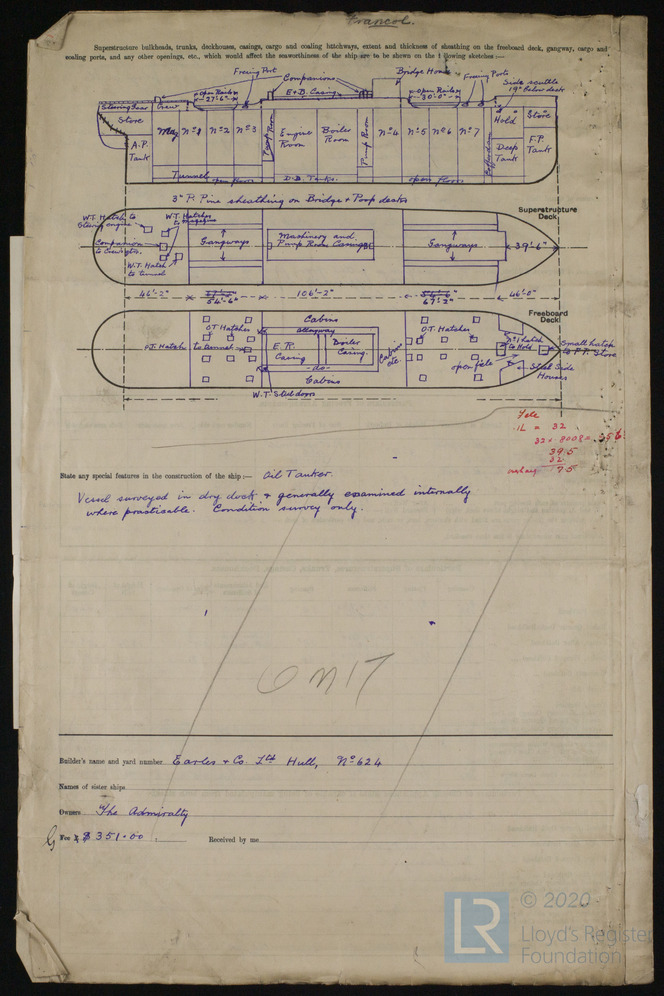 Francol.
Superstructure bulkheads, trunks, deckhouses, casings, cargo and coaling hatchways, extent and thickness of sheathing on the freeboard deck, gangway, cargo and
coaling ports, and any other openings, etc., which would affect the seaworthiness of the ship are to be shown on the following sketches :—
Freeing Port
Companions
Bridge House
Freeing Ports
Side scuttle
19" below deck
Open Rails
27'-6"
E & B. Casing
Open Rails
30'-0"
Steering Gear
Crew
Store
A.P.
Tank
Mag
Nº 1
Nº 2
Nº 3
Pump Room
Engine
Room
Boiler
Room
Pump Room
Nº 4
Nº 5
Nº 6
Nº 7
Cofferdam
Hold
Store
Deep
Tank
F.P.
Tank
Tunnel
open floors
D.B. Tanks.
open floors
3" P. Pine sheathing on Bridge & Poop decks
Superstructure
Deck
W.T. Hatch to
Steering engine
W.T. Hatches
to magazine
Companion
to Crew
W.T. Hatch
to tunnel
Gangways
Machinery and
Pump Room Casings
Gangways
39'-6"
46'-2"
54'-6"
106'-2"
67'-2"
46'-0"
Freeboard
Deck
Cabins
alleyway
O.T. Hatches
W.T. Hatch to tunnel
E.R.
Casing
Boiler
Casing.
-do-
Cabins
Cabins
etc.
O.T. Hatches
Nº 1 hatch
to Hold
Small hatch
to F.P. Store
open fole
Steel Side
Houses
W.T. Steel doors
Fcle
1L = 32
39.5
32
75
State any special features in the construction of the ship :— Oil Tanker.
Vessel surveyed in dry dock & generally examined internally
where practicable. Condition survey only.
Builder's name and yard number Earles & Co. Ltd Hull, Nº 624
Names of sister ships
Owners The Admiralty
Fee $ 351.00 Received by me
© 2020
LR
Lloyd's Register
Foundation